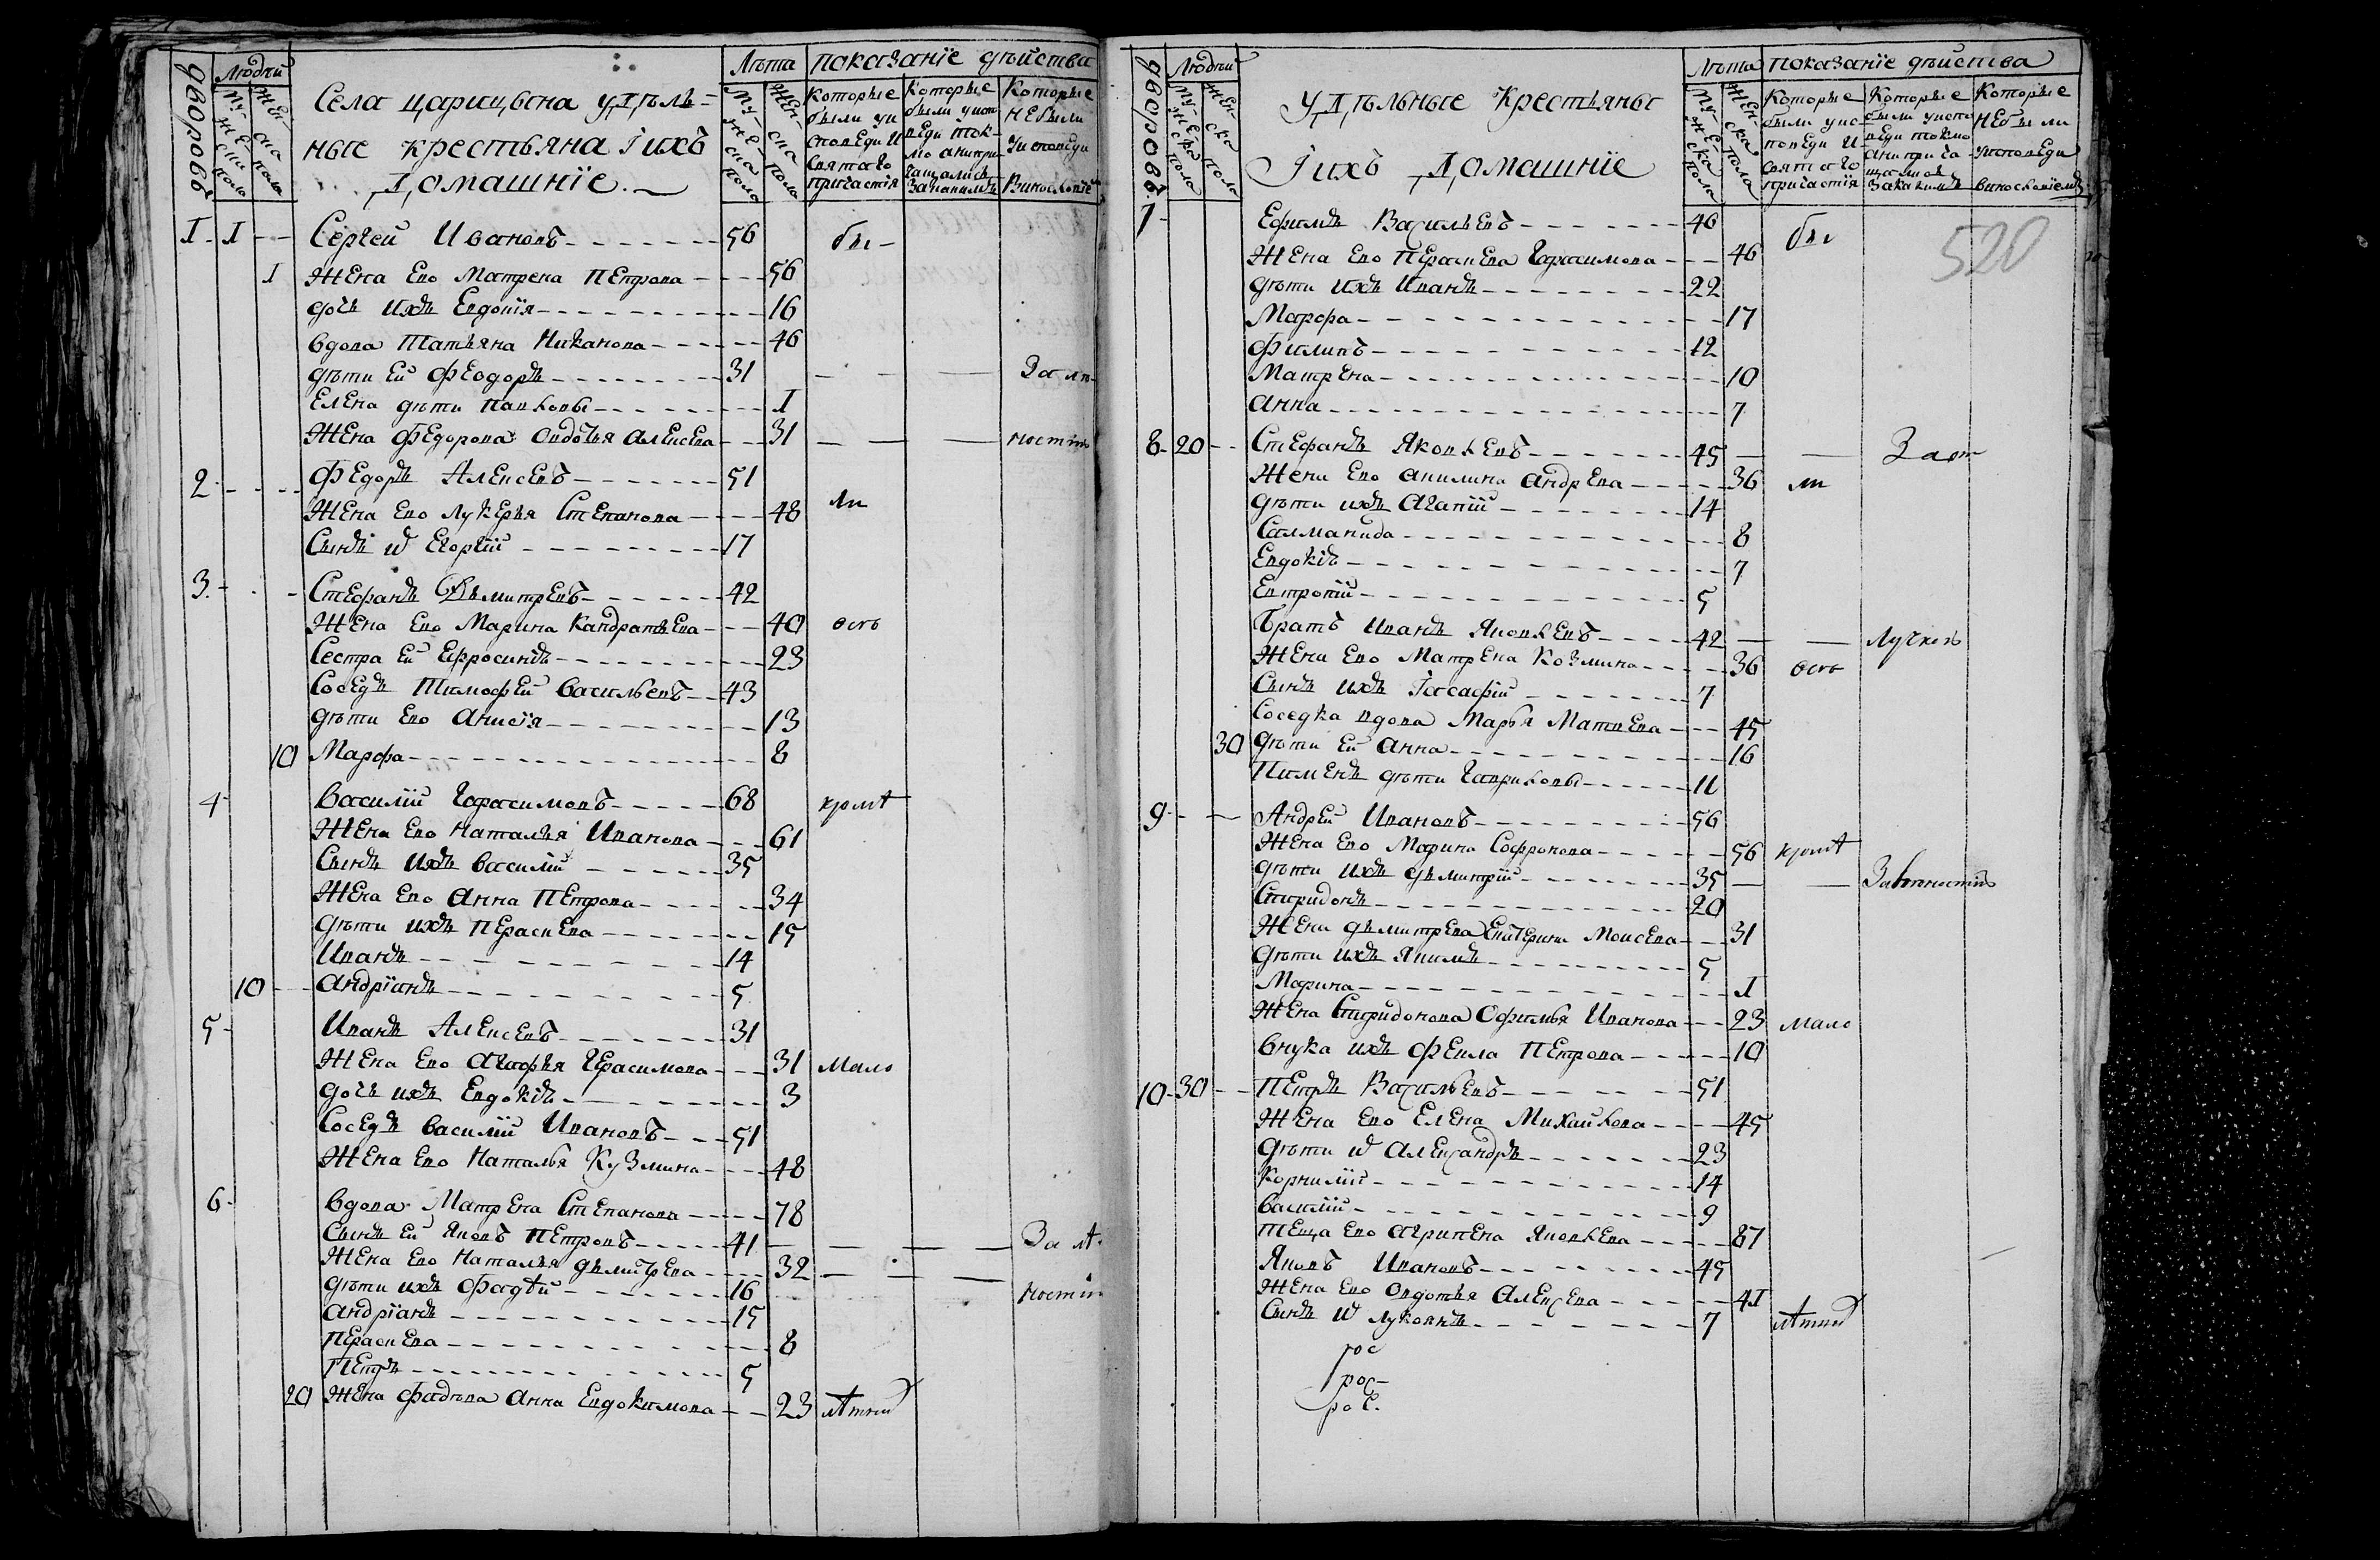 дворовъ
Людей
муженска пола
женска пола
Села царицына удѣль-
ные крестьяна і ихъ
домашніе.
Лѣта
муженска пола
женска пола
показаніе дѣиства
Которые были у исповеди и святаго причастія
Которые были у исповеди токмо а не причащались
Которые не были у исповеди
I I Сергей Ивановъ 56 бы-
I Жена ево Матрена Петрова 56
дочь ихъ Евдокія 16
вдова Татьяна Никанова 46
дѣти ей Феодоръ 31
Елена дѣти Павловы I
Жена Федорова Овдотья Алексева 31
2 Федоръ Алексевъ 51
Жена ево Лукерья Степанова 48 ли
Сынъ и Егоргій 17
3 Стефанъ Дьмитревъ 42
Жена ево Марина Кандратьева 40 всѣ
Сестра ей Ефросинь 23
Соседъ Тимофей васильевъ 43
дѣти ево Анисія 13
10 Марфа 8
4 Василій Гарасимовъ 68 кромѣ
Жена ево Наталья Иванова 61
Сынъ ихъ василій 35
Жена ево Анна Петрова 34
дѣти ихъ Пераскева 15
Иванъ 14
10 Андріанъ 5
5 Иванъ Алексевъ 31
Жена ево Агафья Герасимова 31 мало
дочь ихъ Евдокіь 3
Соседъ василій Ивановъ 51
Жена ево Наталья Кузмина 48
6 вдова Матрена Степанова 78
Сынъ ей Яковъ Петровъ 41
Жена ево Наталья дьмитрева 32
дѣти ихъ Фадѣй 16
Андріанъ 15
Пераскева 8
Петръ 5
20 Жена Фадѣева Анна Евдокимова 23 лѣтныхъ
дворовъ
Людей
муженска пола
женска пола
удѣльные крестьяны
і ихъ домашніе
Лѣта
муженска пола
женска пола
показаніе дѣиства
Которые были у исповеди и святаго причастія
Которые были у исповеди токмо а не причащались
Которые не были у исповеди
520
7 Ефимъ Васильевъ 46 бы
Жена ево Пераскева Гарасимова 46
дѣти ихъ Иванъ 22
Марфа 17
Филипъ 12
Матрена 10
Анна 7
8 20 Стефанъ Яковлевъ 45
Жена ево Акилина Андрева 36 ли
дѣти ихъ Агапій 14
Саламанида 8
Евдокіь 7
Евтропій 5
Братъ Иванъ Яковлевъ 42
Жена ево Матрена Козмина 36 всѣ
Сынъ ихъ Іасафій 7
Соседка вдова Марья Матвева 45
30 дѣти ей Анна 16
Пименъ дѣти Гавриловы 11
9 Андрей Ивановъ 56
Жена ево Марина Софронова 56 кромѣ
дѣти ихъ дьмитрій 35
Спиридонъ 20
Жена дьмитрева Екатерина Моисева 31
дѣти ихъ Якимъ 5
Марина I
Жена Спиридонова Офимья Иванова 23 мало
внука ихъ Фекла Петрова 10
10 30 Петръ Васильевъ 51
Жена ево Елена Михайлова 45
дѣти и Александръ 23
Корнилій 14
василій 9
теща ево Агрипена Яковлева 87
Яковъ Ивановъ 45
Жена ево Овдотья Алексева 41
Сынъ и Лукоянъ 7 лѣтныхъ